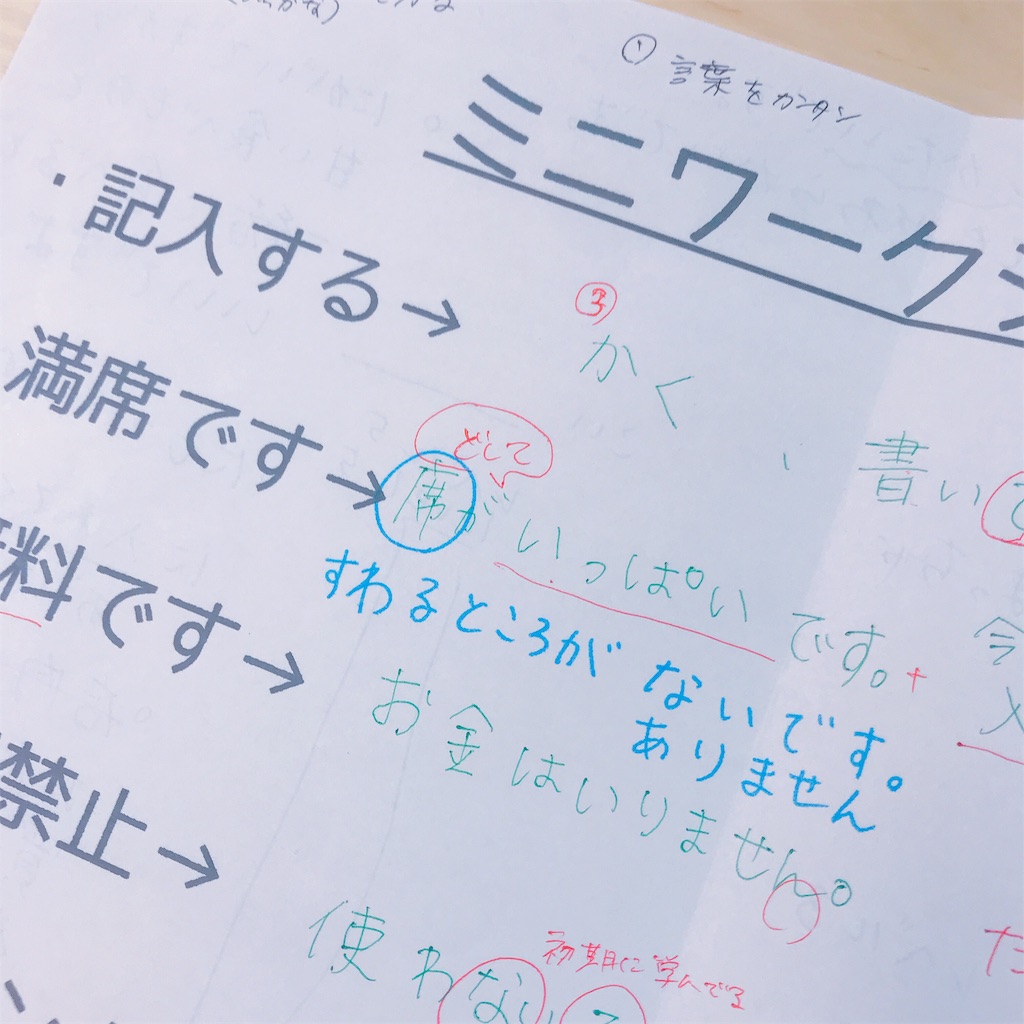 ① 言葉をカンタン
ミニワーク
・記入する→
③
かく
書いて
満席です→
どして
席がいっぱいです。+
すわるところがないです。
ありません
料です→
お金はいりません。
禁止→
初期に学んでる
使わない